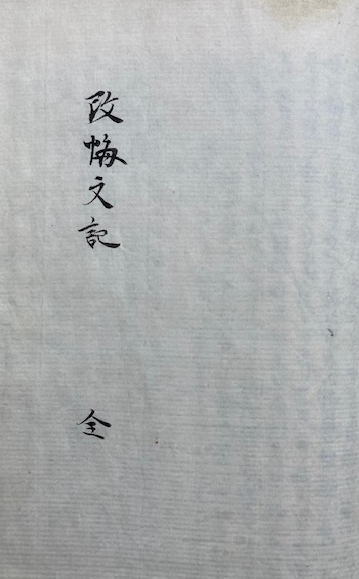 改悔文記 全